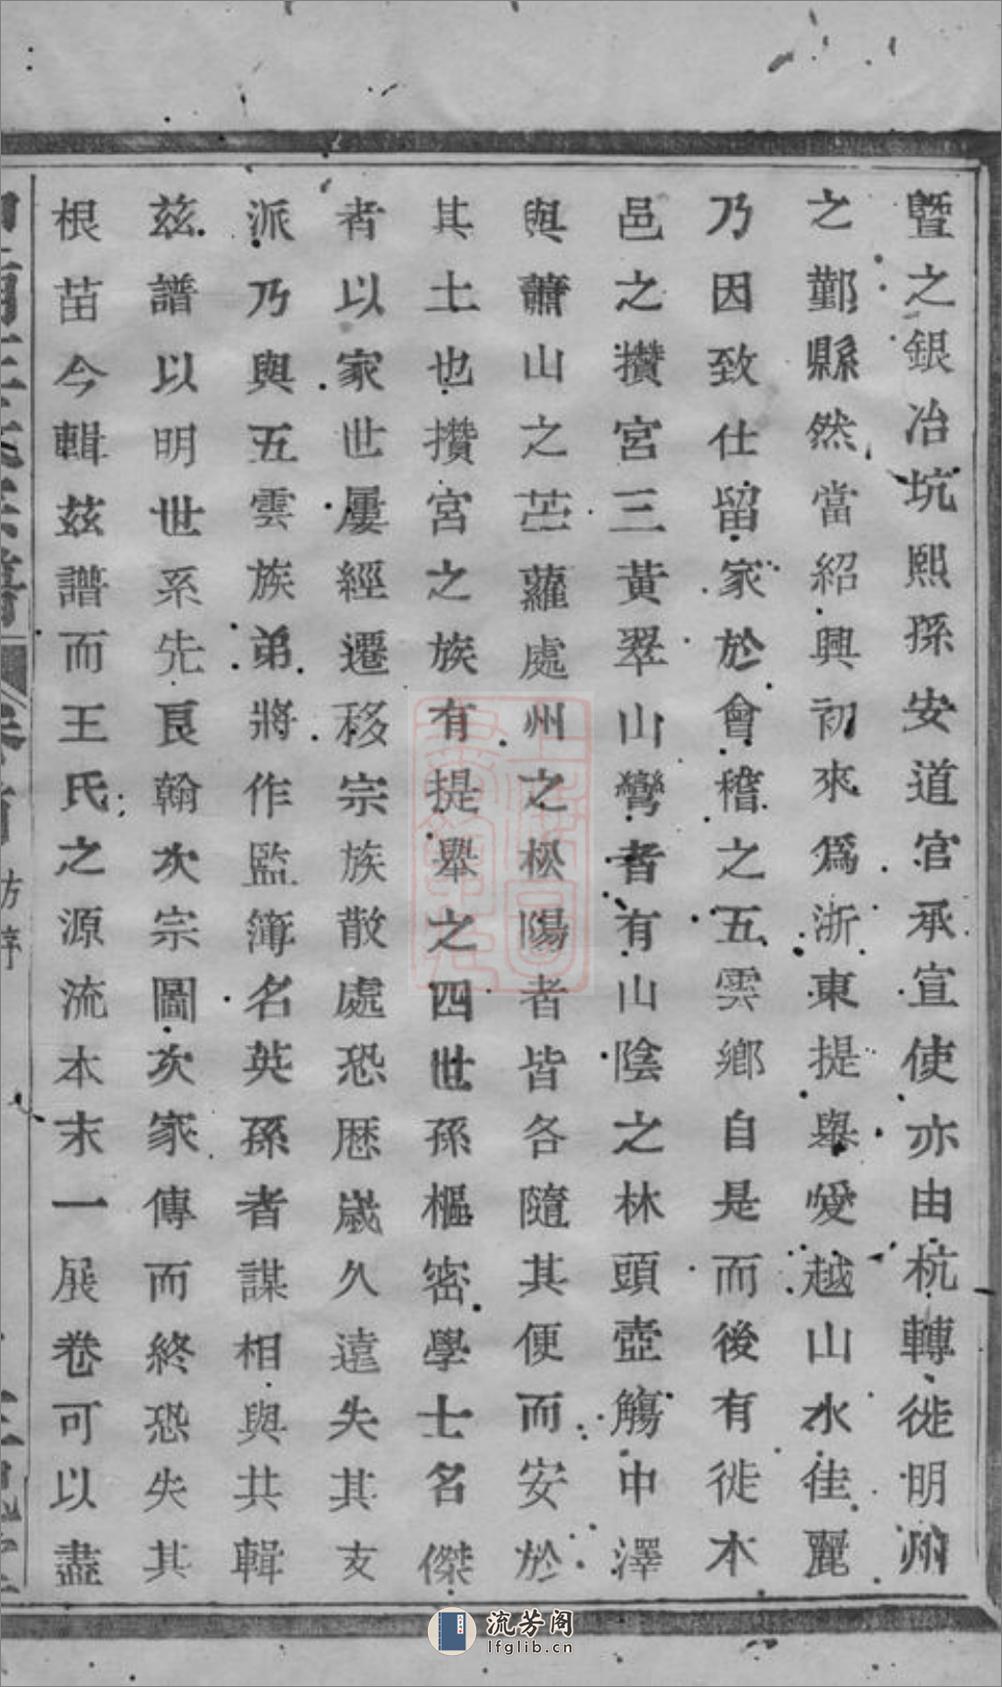 曁之銀冶坑熙孫安道官承宣使亦由杭轉徙明州
之鄞縣然當紹興初來爲浙東提舉愛越山水佳麗
乃因致仕留家於會稽之五雲鄉自是而後有徙本
邑之攢宮三黃翠山灣者有山陰之林頭壺觴中澤
與蕭山之苎蘿處州之松陽者皆各隨其便而安於
其土也攢宮之族有提舉之四世孫樞密學士名傑
者以家世屢經遷移宗族散處恐歴歲久遠失其支
派乃與五雲族弟將作監簿名英孫者謀相與共輯
兹譜以明世系先良翰次宗圖次家傳而終恐失其
根苗今輯兹譜而王氏之源流本末一展卷可以盡
方序
流芳阁
lfglib.cn